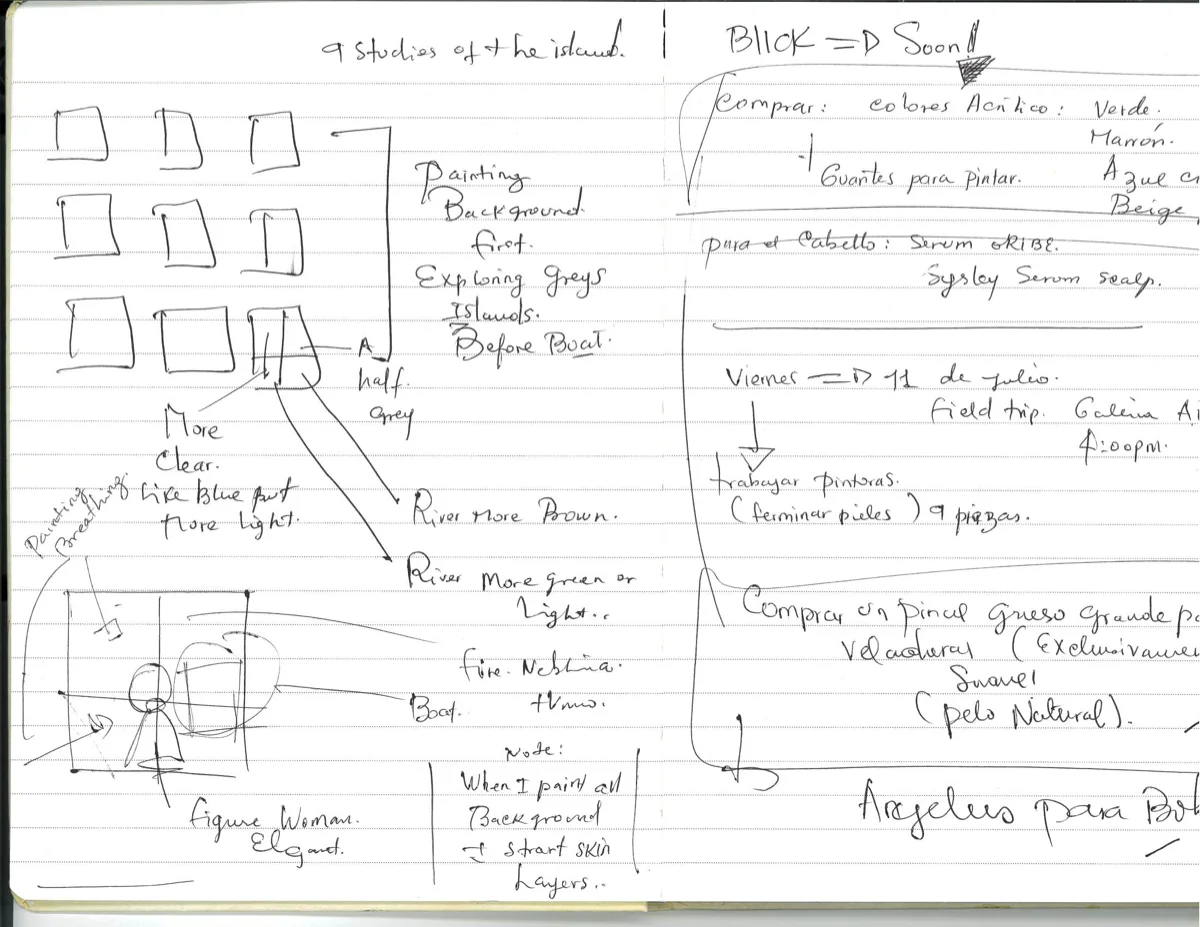 9 Studies of the island.
Painting
Background
first.
Exploring Greys
Islands.
Before Boat.
A
half.
Grey
More
Clear.
Like Blue but
More Light.
Painting
Breathing.
River More Brown.
River More green or
Light..
Neblina.
Boat.
Figure Woman.
Note:
When I paint all
Background
I start skin
Layers..
BlICK => Soon!
Comprar: Colores Acrílico: Verde.
Marrón.
+ Guantes para pintar.
Beige
para el Cabello: Serum ORIBE.
Sysley Serum scalp.
Viernes => 11 de julio.
Field trip. Galeria
4:00pm.
trabajar pinturas.
(terminar pieles) 9 piezas.
Comprar un pincel grueso grande
(Exclusivamen
(pelo Natural).
para